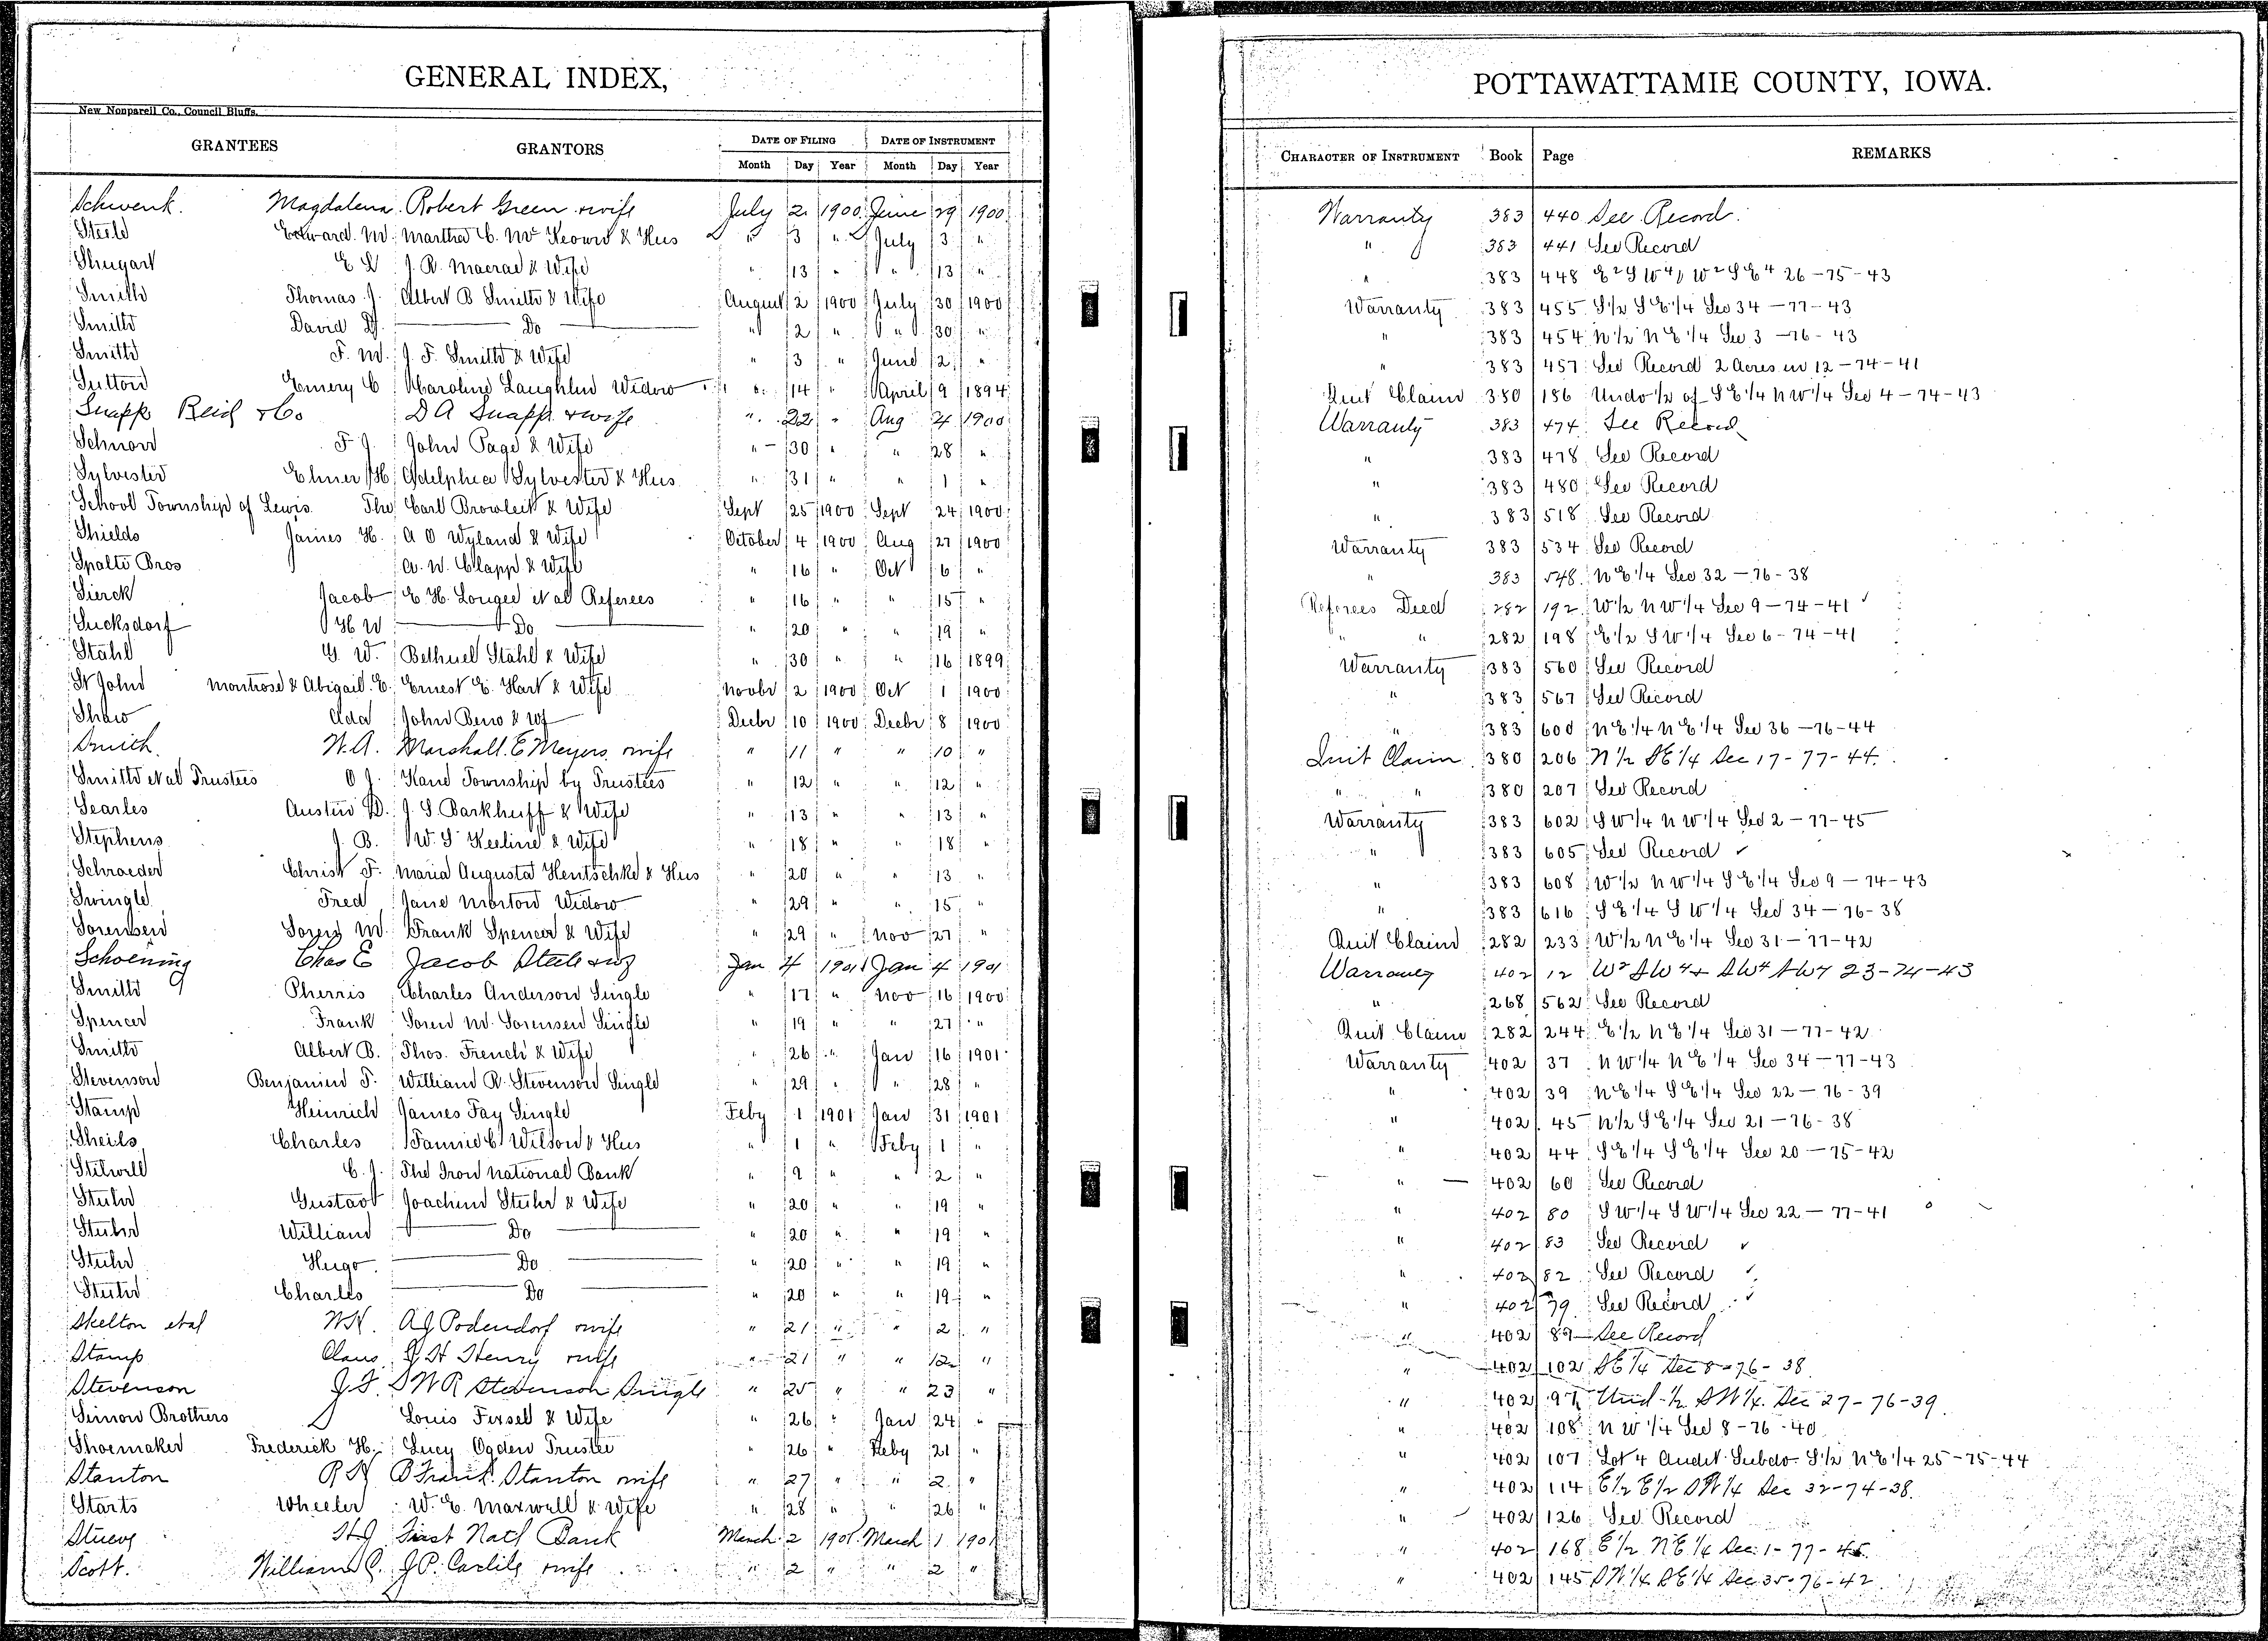 GENERAL INDEX,
New Nonpareil Co., Council Bluffs.
GRANTEES GRANTORS DATE OF FILING DATE OF INSTRUMENT
Month Day Year Month Day Year
Schwenk. Magdalena. Robert Green wife July 2 1900 June 29 1900
Edward M. Martha C. Mc Keown & Hus " 3 " July 3 "
Shugart E L J. R. Macrae & Wife " 13 " " 13 "
Smith Thomas J. Albert B Smith & Wife August 2 1900 July 30 1900
Smith David Do " 2 " " 30 "
Smith F. M. J. F. Smith & Wife " 3 " June 2 "
Sutton Emery C Caroline Laughlin Widow " 14 " April 9 1894
Snapp Reid & Co D A Snapp & wife " 22 " Aug 1900
Schnorr F J. John Page & Wife " 30 " " 28 "
Sylvester Elmer H Adelphia Sylvester & Hus " 31 " " 1 "
School Township of Lewis The Carl & Wife Sept 25 1900 Sept 24 1900
Shields James H. A O Wyland & Wife October 4 1900 Aug 27 1900
Spalti Bros A. W. Clapp & Wife " 16 " Oct 6 "
Sierck Jacob E. H. Lougee et al Referees " 16 " " 15 "
Sucksdorf H W Do " 20 " " 19 "
Stahl G. W. Bethuel Stahl & Wife " 30 " " 16 1899
St John Montrose & Abigail E. Ernest E. Hart & Wife Novbr 2 1900 Oct 1 1900
Shaw Ada John Beno & Wf Decbr 10 1900 Decbr 8 1900
Smith. W. A. Marshall. E Meyers wife " 11 " " 10 "
Smith et al Trustees O J. Kane Township by Trustees " 12 " " 12 "
Searles Austin D. J. S Barkhuff & Wife " 13 " " 13 "
Stephens J. B. W. S Keeline & Wife " 18 " " 18 "
Schroeder Christ F. Maria Augusta Hentschke & Hus " 20 " " 13 "
Swingle Fred Jane Morton Widow " 29 " " 15 "
Sorensen Soren M. Frank Spencer & Wife " 29 " Nov 27 "
Schoening Chas E Jacob & wf Jan 4 1901 Jan 4 1901
Smith Pherris Charles Anderson Single " 17 " Nov 16 1900
Spencer Frank Soren M. Sorensen Single " 19 " " 27 "
Smith Albert B. Thos. French & Wife " 26 " Jan 16 1901
Stevenson Benjamin F. William R. Stevenson Single " 29 " " 28 "
Stamp Heinrich James Fay Single Feby 1 1901 Jan 31 1901
Sheils Charles Fannie C Wilson & Hus " 1 " Feby 1 "
Stilwell C. J. The Iron National Bank " 9 " " 2 "
Stuhr Gustav Joachim Stuhr & Wife " 20 " " 19 "
Stuhr William Do " 20 " " 19 "
Stuhr Hugo. Do " 20 " " 19 "
Stuhr Charles Do " 20 " " 19 "
Skelton et al W H. A J Podendorf wife " 21 " " 2 "
Stamp Claus. H Henry wife " 21 " " 12 "
Stevenson J. F. W R Stevenson Single " 25 " " 23 "
Simon Brothers Louis & Wife " 26 " Jan 24 "
Shoemaker Frederick H. Lucy Ogden Trustee " 26 " Feby 21 "
Stanton R H B Frank Stanton wife " 27 " " 2 "
Starts Wheeler W. E. Maxwell & Wife " 28 " " 26 "
H J First Natl Bank March 2 1901 March 1 1901
Scott. William C. J P. Carlile wife " 2 " " 2 "
POTTAWATTAMIE COUNTY, IOWA.
CHARACTER OF INSTRUMENT Book Page REMARKS
Warranty 383 440 See Record.
" 383 441 See Record
" 383 448 E2 S W4 W2 S E4 26-75-43
Warranty 383 455 S 1/2 S E 1/4 Sec 34-77-43
" 383 454 N 1/2 N E 1/4 Sec 3-76-43
" 383 457 See Record 2 Acres in 12-74-41
Quit Claim 380 186 Undo 1/2 of S E 1/4 N W 1/4 Sec 4-74-43
Warranty 383 474 See Record
" 383 478 See Record
" 383 480 See Record
" 383 518 See Record
Warranty 383 534 See Record
" 383 548 N E 1/4 Sec 32-76-38
Referees Deed 282 192 W 1/2 N W 1/4 Sec 9-74-41
" " 282 198 E 1/2 S W 1/4 Sec 6-74-41
Warranty 383 560 See Record
" 383 567 See Record
" 383 600 N E 1/4 N E 1/4 Sec 36-76-44
Quit Claim 380 206 N 1/2 S E 1/4 Sec 17-77-44.
" " 380 207 See Record
Warranty 383 602 S W 1/4 N W 1/4 Sec 2-77-45
" 383 605 See Record
" 383 608 W 1/2 N W 1/4 S E 1/4 Sec 9-74-43
" 383 616 S E 1/4 S W 1/4 Sec 34-76-38
Quit Claim 282 233 W 1/2 N E 1/4 Sec 31-77-42
Warranty 402 12 W2 S W4 & S W4 N W4 23-74-43
" 268 562 See Record
Quit Claim 282 244 E 1/2 N E 1/4 Sec 31-77-42
Warranty 402 37 N W 1/4 N E 1/4 Sec 34-77-43
" 402 39 N E 1/4 S E 1/4 Sec 22-76-39
" 402 45 N 1/2 S E 1/4 Sec 21-76-38
" 402 44 S E 1/4 S E 1/4 Sec 20-75-42
" 402 60 See Record
" 402 80 S W 1/4 S W 1/4 Sec 22-77-41
" 402 83 See Record
" 402 82 See Record
" 402 79 See Record
" 402 89 See Record
" 402 102 S E 1/4 Sec 8-76-38
" 402 97 Und 1/2 S W 1/4. Sec 27-76-39
" 402 108 N W 1/4 Sec 8-76-40
" 402 107 Lot 4 Audit Subdo S 1/2 N E 1/4 25-75-44
" 402 114 E 1/2 E 1/2 S W 1/4 Sec 32-74-38.
" 402 126 See Record
" 402 168 E 1/2 N E 1/4 Sec. 1-77-45.
" 402 145 S W 1/4 S E 1/4 Sec 35-76-42